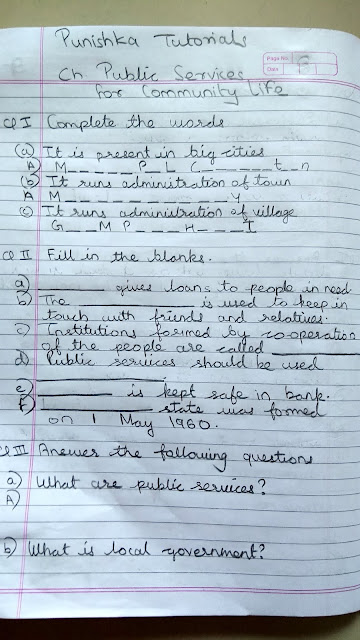 Page No.
Date
Punishka Tutorials
Ch Public Services
for Community Life
Q I Complete the words
(a) It is present in big cities
A) M_ _ _ _ _ P _ L C _ _ _ _ _ t _ n
(b) It runs administration of town
A M _ _ _ _ _ _ _ _ _ _ _ y
(c) It runs administration of village
G _ _ M P _ _ _ _ H _ _ _ I
Q II Fill in the blanks.
a) ________ gives loans to people in need
b) The ____________ is used to keep in
touch with friends and relatives.
c) Institutions formed by co-operation
of the people are called ________
d) Public services should be used
____________
e) ________ is kept safe in bank.
f) ____________ state was formed
on 1 May 1960.
Q III Answer the following questions
a) What are public services?
A)
b) What is local government?